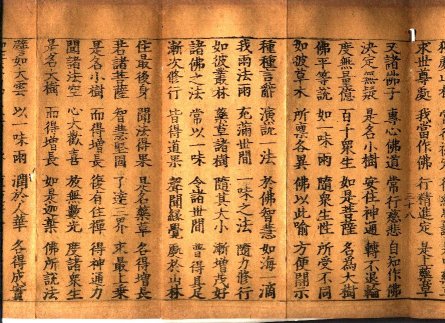 求世尊處 我當作佛 行精進定 是上藥草
又諸佛子 專心佛道 常行慈悲 自知作佛
決定無疑 是名小樹 安住神通 轉不退輪
度無量億 百千眾生 如是菩薩 名為大樹
佛平等說 如一味雨 隨眾生性 所受不同
如彼草木 所稟各異 佛以此喻 方便開示
種種言辭 演說一法 於佛智慧 如海一滴
我雨法雨 充滿世間 一味之法 隨力修行
如彼叢林 藥草諸樹 隨其大小 漸增茂好
諸佛之法 常以一味 令諸世間 普得具足
漸次修行 皆得道果 聲聞緣覺 處於山林
住最後身 聞法得果 是名藥草 各得增長
若諸菩薩 智慧堅固 了達三界 求最上乘
是名小樹 而得增長 復有住禪 得神通力
聞諸法空 心大歡喜 放無數光 度諸眾生
是名大樹 而得增長 如是迦葉 佛所說法
譬如大雲 以一味雨 潤於人華 各得成實